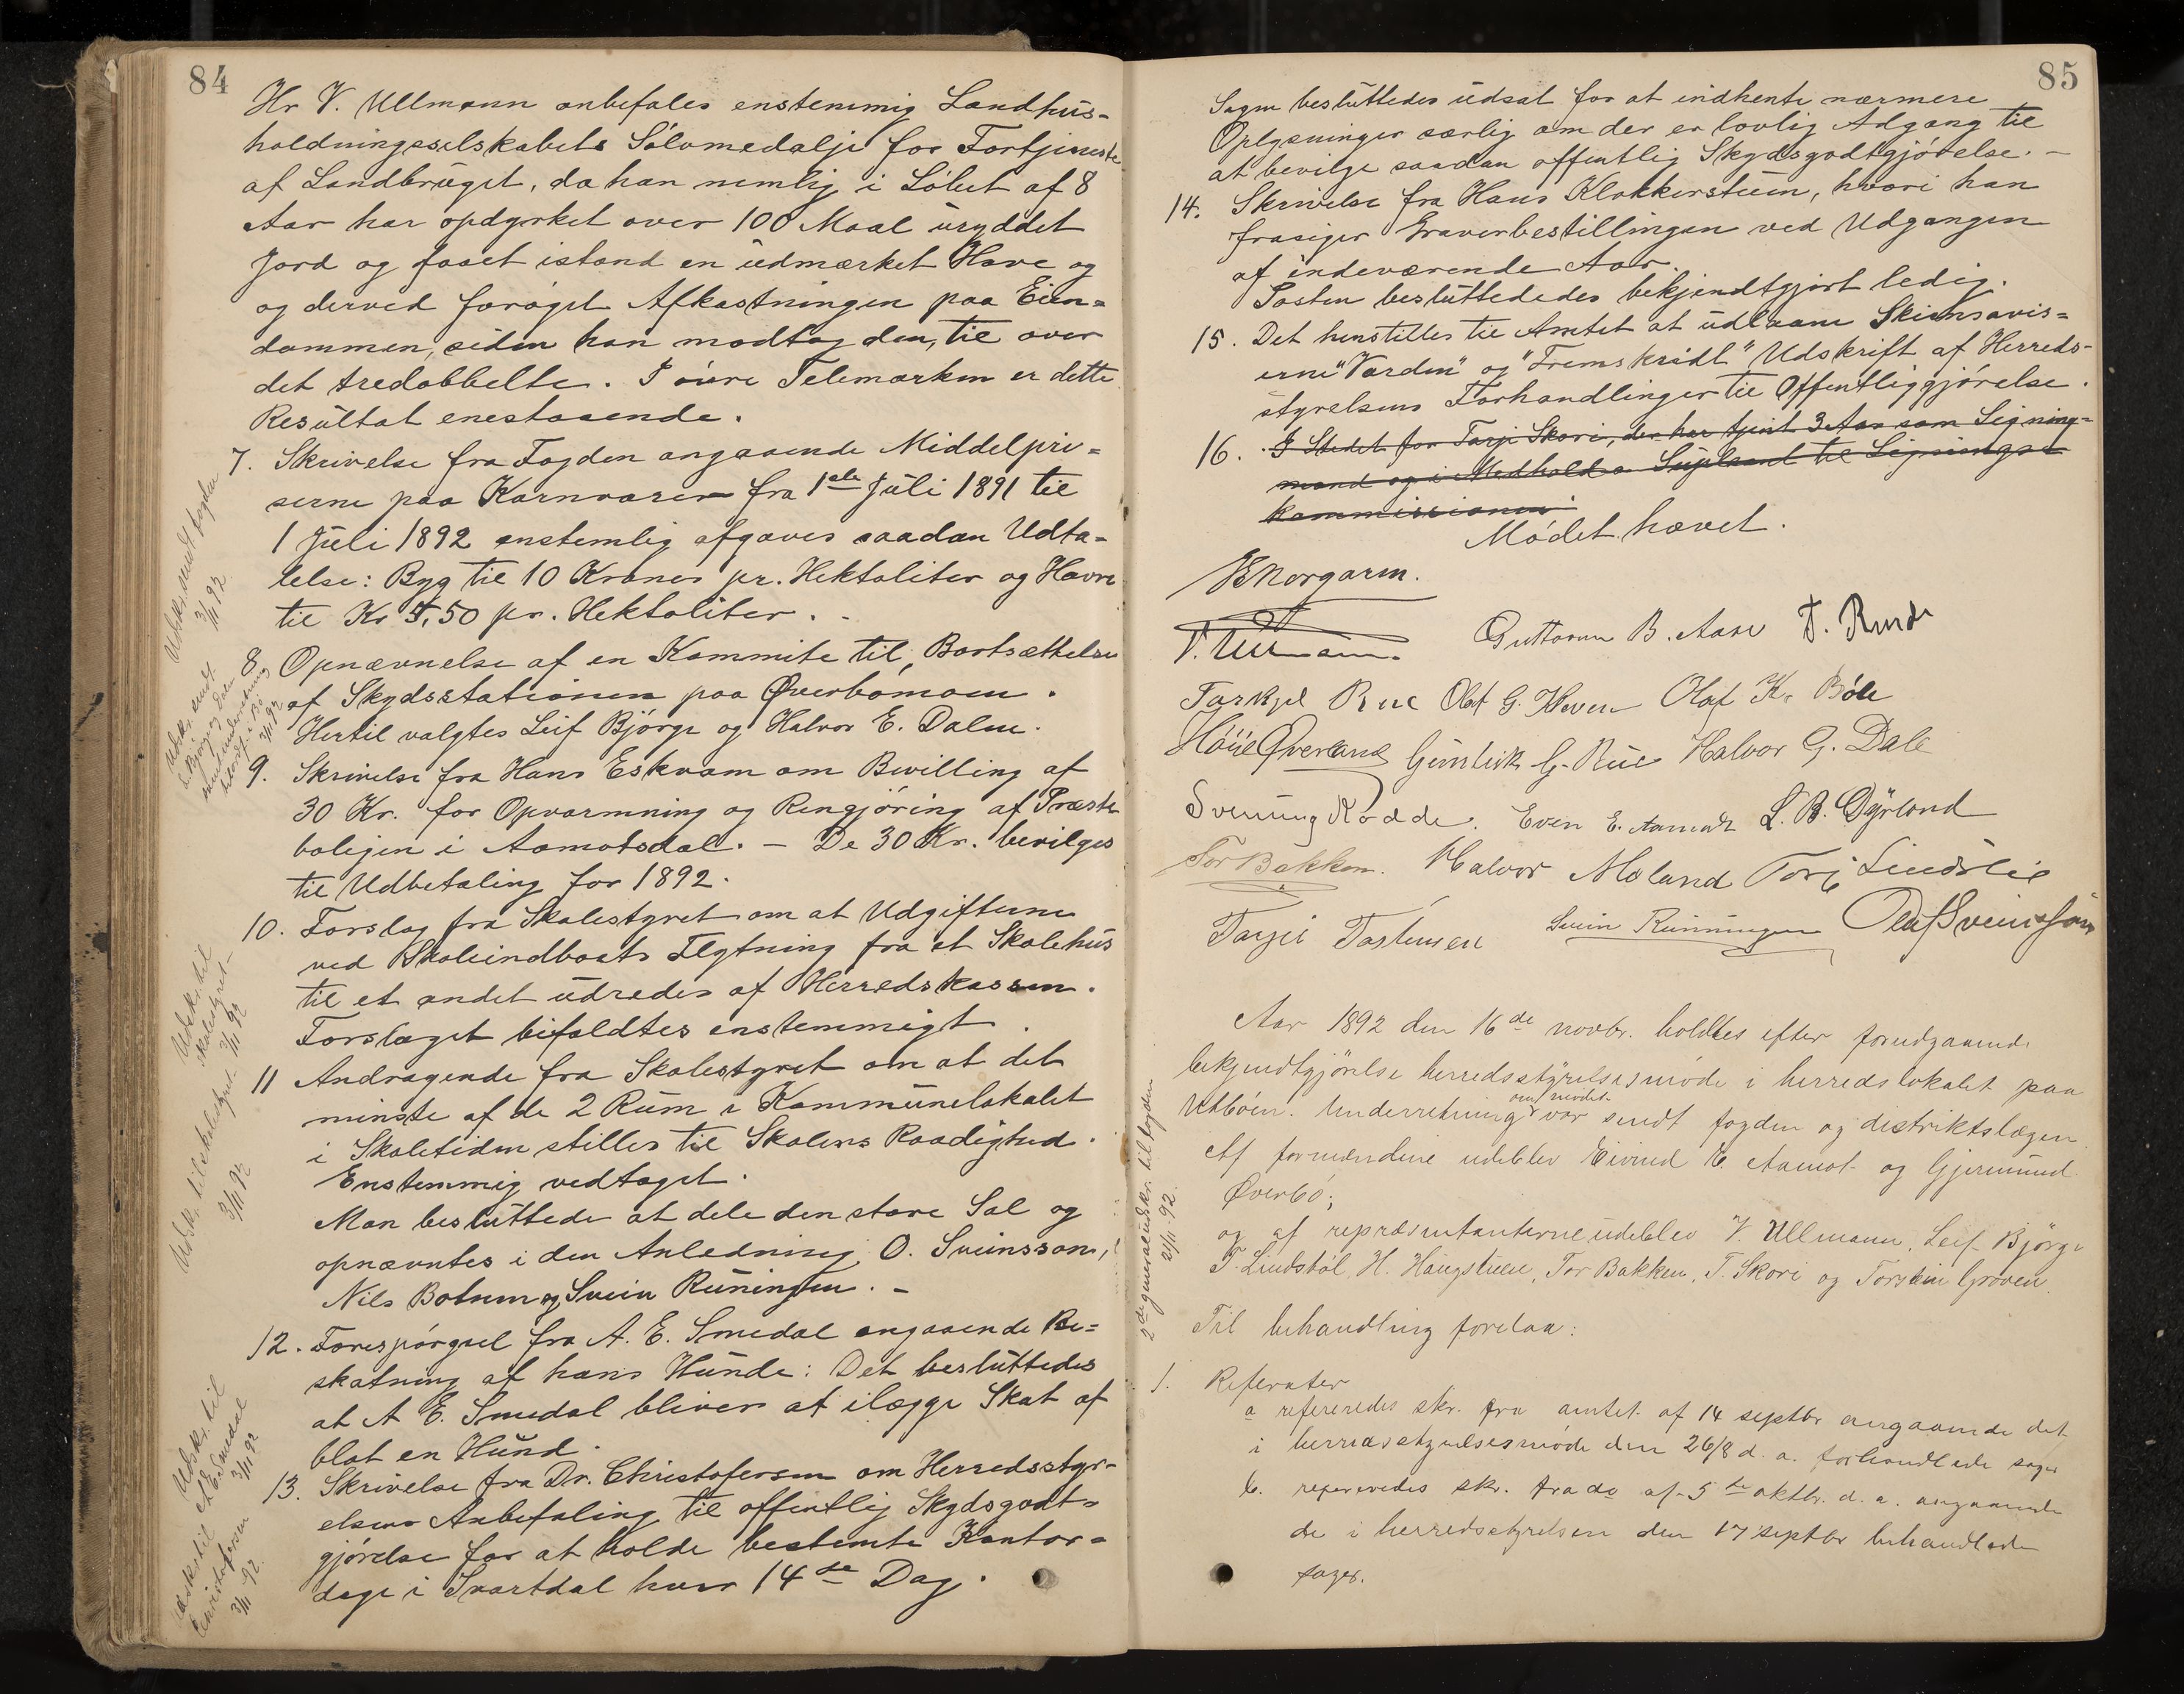 84
Hr V. Ullmann anbefales enstemmig Landhus-
holdningsselskabets Sølvmedalje for Fortjeneste
af Landbruget, da han nemlig i Løbet af 8
Aar har opdyrket over 100 Maal uryddet
Jord og faaet istand en udmærket Have og
og derved forøget Afkastningen paa Eien-
dommen, siden han modtog den, til over
det tredobbelte. I øvre Telemarken er dette
Resultat enestaaende.
7. Skrivelse fra Fogden angaaende Middelpri-
serne paa Kornvarer fra 1ste Juli 1891 til
1 Juli 1892 enstemlig afgaves saadan Udta-
lelse: Byg til 10 Kroner pr. Hektoliter og Havre
til Kr 5,50 pr. Hektoliter.
Udskr. sendt fogden
3/11 92
8. Opnævnelse af en Kommite til Bortsættelse
af Skydsstationen paa Øverbømoen.
Hertil valgtes Leif Bjørge og Halvor E. Dalen.
Udskr. sendt
L. Bjørge og Dalen
3/11 92
9. Skrivelse fra Hans Eskvam om Bevilling af
30 Kr. for Opvarmning og Rengjøring af Præste
boligen i Aamotsdal. – De 30 Kr. bevilges
til Udbetaling for 1892.
10. Forslag fra Skolestyret om at Udgifterne
ved Skoleindboets Flytning fra et Skolehus
til et andet udredes af Herredskassen.
Forslaget bifaldtes enstemmigt.
Udskr. til
skolestyret
3/11 92
11 Andragende fra Skolestyret om at det
minste af de 2 Rum i Kommunelokalet
i Skoletiden stilles til Skolens Raadighed.
Enstemmig vedtaget.
Man besluttede at dele den store Sal og
opnævntes i den Anledning O. Sveinsson,
Nils Botnen og Svein Runingen. –
Udsk. til skolestyret
3/11 92
12. Forespørgsel fra A. E. Smedal angaaende Be-
skatning af hans Hunde: Det besluttedes
at A E. Smedal bliver at ilægge Skat af
blot en Hund.
Udsk. til
A E Smedal
3/11 92
13. Skrivelse fra Dr. Christofersen om Herredsstyr-
elsens Anbefaling til offentlig Skydsgodt-
gjørelse for at holde bestemte Kontor-
dage i Svartdal hver 14de Dag.
Udsk. til
Christofersen
3/11 92.
85
Sagen besluttedes udsat for at indhente nærmere
Oplysninger særlig om der er lovlig Adgang til
at bevilge saadan offentlig Skydsgodtgjørelse. –
14. Skrivelse fra Hans Klokkerstuen, hvori han
frasiger Graverbestillingen ved Udgangen
af indeværende Aar.
Posten besluttededes bekjendtgjørt ledig.
15. Det henstilles til Amtet at udlaane Skiensavis-
erne "Varden" og "Fremskridt" Udskrift af Herreds-
styrelsens Forhandlinger til Offentliggjørelse.
16. I Stedet for Tarje Skori, der har tjent 3 Aar som Ligning-
mand og i Medhold a Supleant til Lignings
kommissionen
Mødet hævet.
V. Ullmann.
Guttorm B. Aase T. Rinde
Tarkjel Rue Olaf G. Kleven Olaf K. Bøle
Høue Øverland Gunleik G. Rue Halvor G. Dale
Svenung Rodde. Even E. Aamodt L. B. Dyrland
Tor Bakken. Halvor Moland Torj Lindslie
Tarjei Tastensen Svein Runningen Olaf Sveinsson
Aar 1892 den 16de novbr. holdtes efter forudgaaende
bekjendtgjörelse herredsstyrelsesmöde i herredslokalet paa
Utböen. Underretning om mödet var sendt fogden og distriktslægen.
Af formændene udeblev Eivind K. Aamot og Gjermund
Øverbö,
og af repræsentanterne udeblev V. Ullmann, Leif Björge
T. Lindstöl, H. Haugstuen, Tor Bakken, T. Skori og Torstein Groven.
2de generaludskr. til fogden
21/11-92.
Til behandling forelaa:
1. Referater
a refereredes skr. fra amtet af 14 septbr angaaende det
i herredsstyrelsesmöde den 26/8 d. a. forhandlede sager
b. refereredes skr. fra do af 5te oktbr. d. a. angaaende
de i herredsstyrelsen den 17 septbr behandlede
sager.